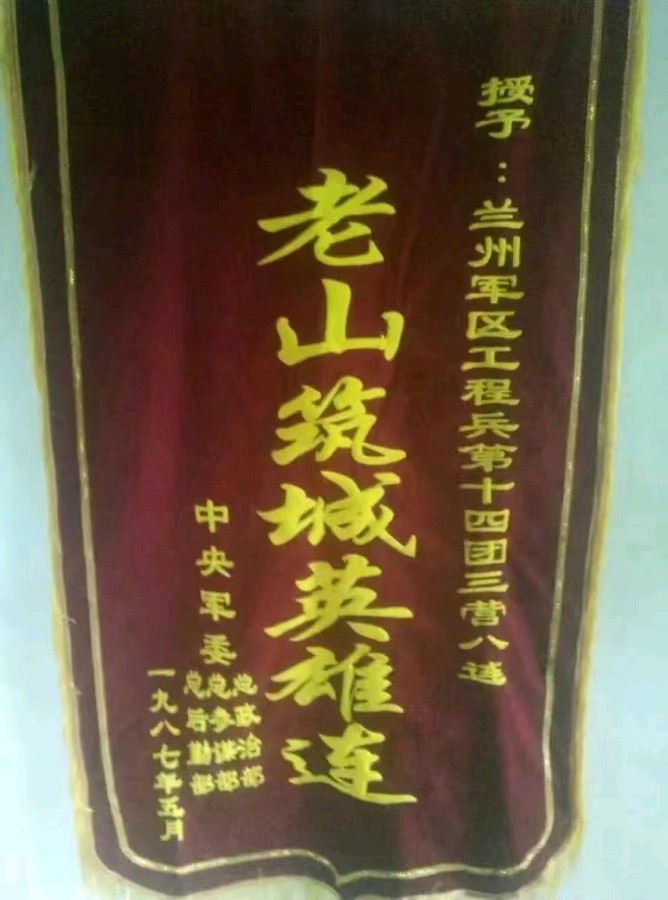 授予：兰州军区工程兵第十四团三营八连
老山筑城英雄连
中央军委
总政治部
总参谋部
总后勤部
一九八七年五月